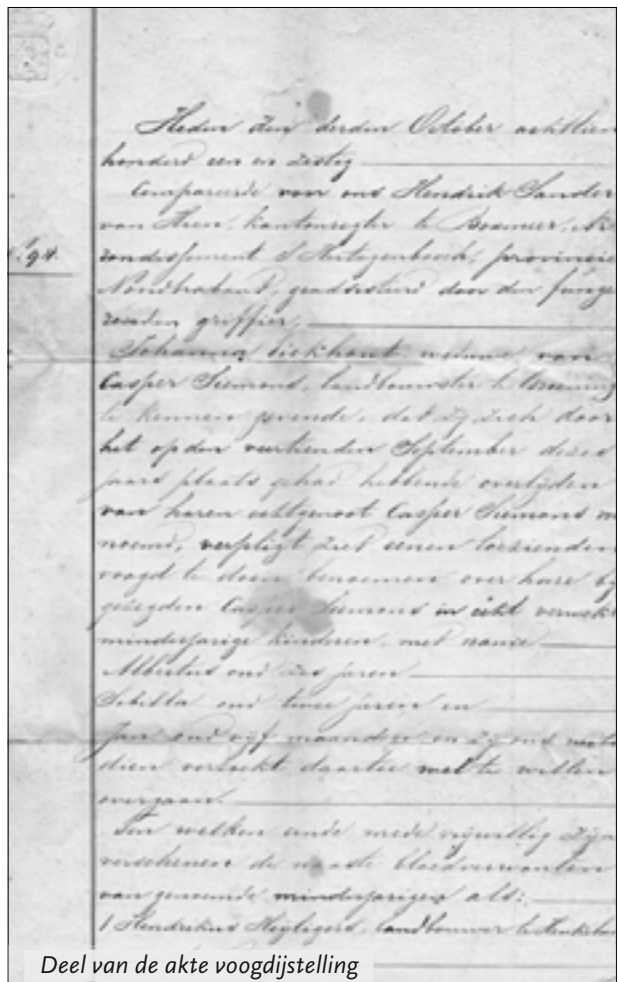 Heden den derden October achttien
honderd een en zestig
Compareerde voor ons Hendrik Sander
van kantonregter te Boxmeer, Ar
No. 94.
rondissement S Hertogenbosch, provincie
Noordbrabant, geadsisteerd door den funge
renden griffier,
Johanna weduwe van
Casper Siemons, landbouwster te
te kennen gevende, dat zij zich door
het op den veertienden September dezes
jaars plaats gehad hebbende overlijden
van haren echtgenoot Casper Siemons
noemd, verpligt ziet eenen toezienden
voogd te doen benoemen over hare bij
gezegden Casper Siemons in echt verwekt
minderjarige kinderen, met name
Albertus oud zes jaren
Sibilla oud twee jaren en
Jan oud vijf maanden en zij ons
dien verzoekt daartoe wel te willen
overgaan.
Ten welken einde mede vrijwillig zijn
verschenen de naaste bloedverwanten
van genoemde minderjarigen als:
1 Hendrikus Heyligers, landbouwer te
Deel van de akte voogdijstelling